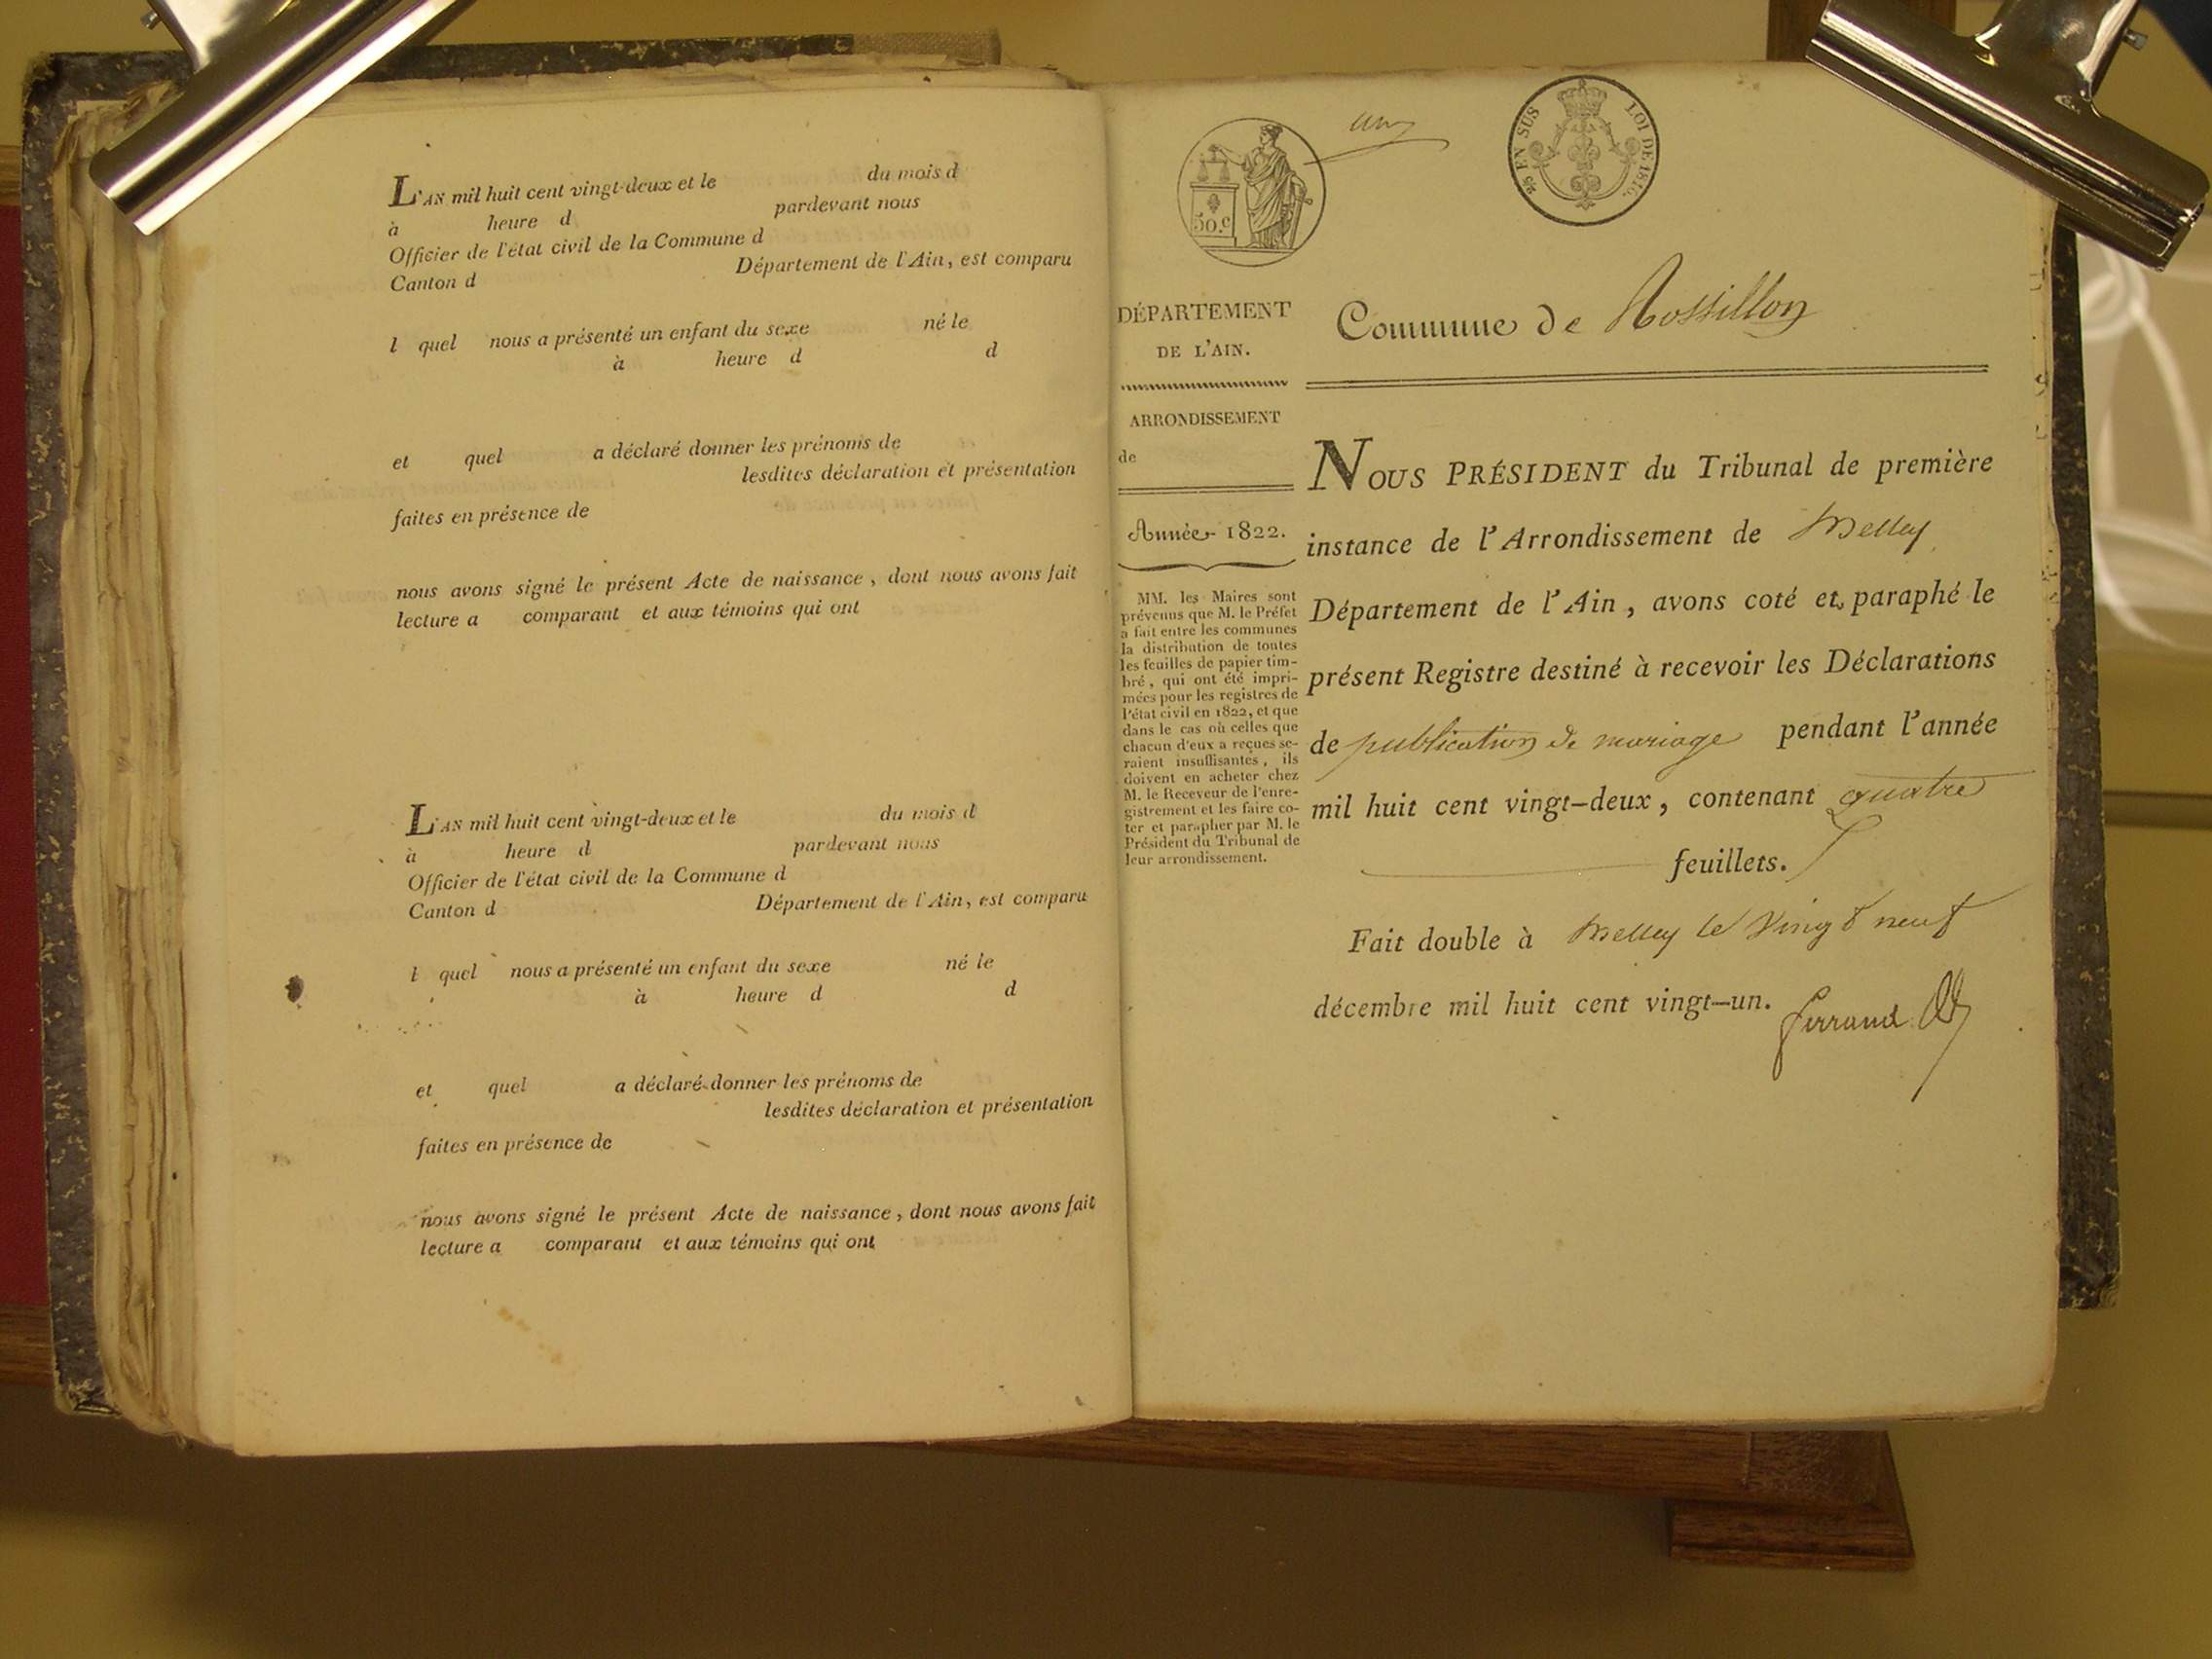 L'AN mil huit cent vingt-deux et le du mois d
à heure d pardevant nous
Officier de l'état civil de la Commune d
Canton d Département de l'Ain, est comparu
l quel nous a présenté un enfant du sexe né le
à heure d d
et quel a déclaré donner les prénoms de
lesdites déclaration et présentation
faites en présence de
nous avons signé le présent Acte de naissance, dont nous avons fait
lecture a comparant et aux témoins qui ont
L'AN mil huit cent vingt-deux et le du mois d
à heure d pardevant nous
Officier de l'état civil de la Commune d
Canton d Département de l'Ain, est comparu
l quel nous a présenté un enfant du sexe né le
à heure d d
et quel a déclaré donner les prénoms de
lesdites déclaration et présentation
faites en présence de
nous avons signé le présent Acte de naissance, dont nous avons fait
lecture a comparant et aux témoins qui ont
50.c
un
25 EN SUS LOI DE 1816.
DÉPARTEMENT
DE L'AIN.
ARRONDISSEMENT
de
Année 1822.
MM. les Maires sont
prévenus que M. le Préfet
a fait entre les communes
la distribution de toutes
les feuilles de papier tim-
bré, qui ont été impri-
mées pour les registres de
l'état civil en 1822, et que
dans le cas où celles que
chacun d'eux a reçues se-
raient insuffisantes, ils
doivent en acheter chez
M. le Receveur de l'enre-
gistrement et les faire co-
ter et parapher par M. le
Président du Tribunal de
leur arrondissement.
Commune de Rossillon
NOUS PRÉSIDENT du Tribunal de première
instance de l'Arrondissement de Belley
Département de l'Ain, avons coté et paraphé le
présent Registre destiné à recevoir les Déclarations
de publication de mariage pendant l'année
mil huit cent vingt-deux, contenant quatre
feuillets.
Fait double à Belley le vingt neuf
décembre mil huit cent vingt-un.
ferrand